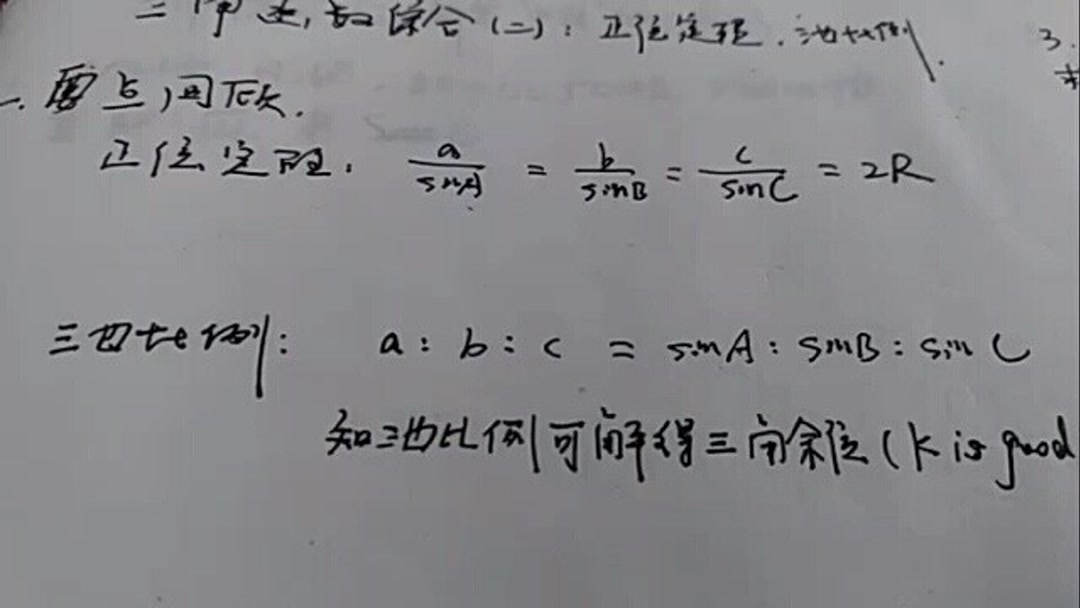 综合(二): 正弦定理. 三边比例. 3.
一. 要点回顾.
正弦定理. a/sinA = b/sinB = c/sinC = 2R
三边比例: a : b : c = sinA : sinB : sin C
知三边比例可解得三角余弦 (k is good